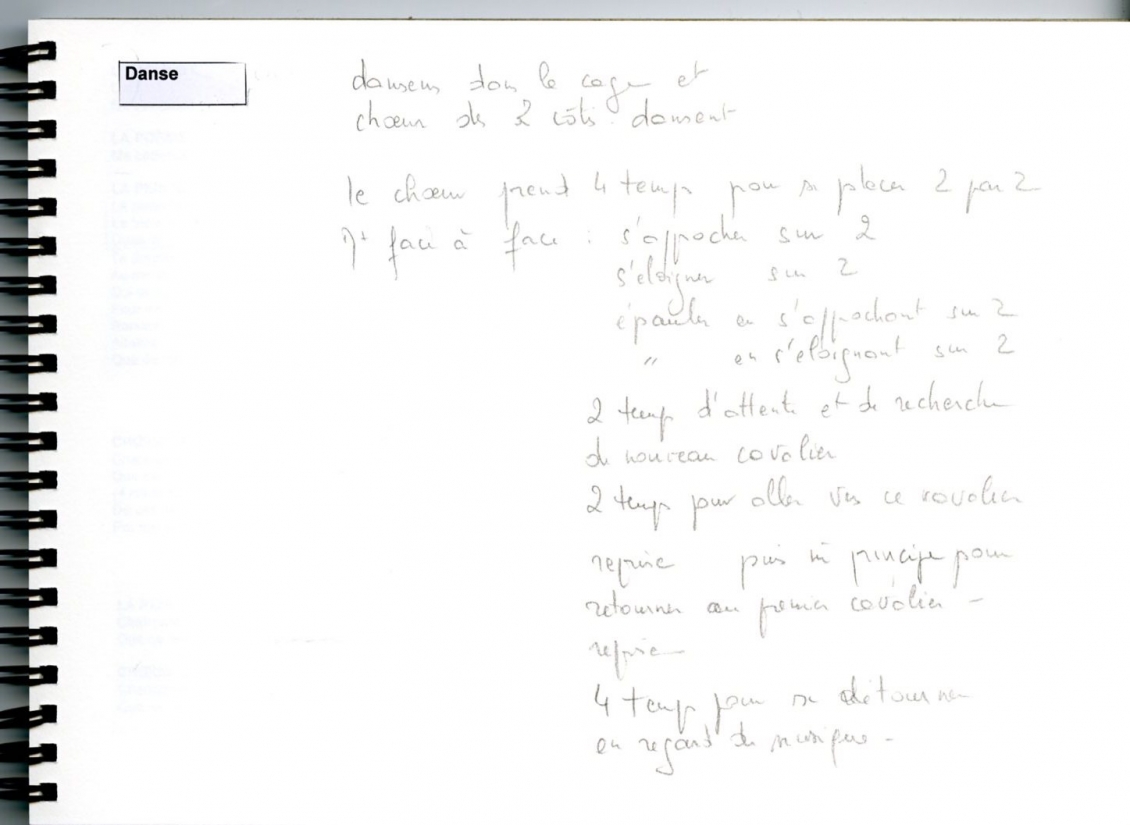 Danse
danseurs dans la cage et
chœur des 2 côtés dansent
le chœur prend 4 temps pour se placer 2 par 2
face à face : s'approcher sur 2
s'éloigner sur 2
épauler en s'approchant sur 2
" en s'éloignant sur 2
2 temps d'attente et de recherche
du nouveau cavalier
2 temps pour aller vers ce cavalier
reprise puis m̂ principe pour
retourner au premier cavalier -
reprise
4 temps pour se détourner
en regard de musique -